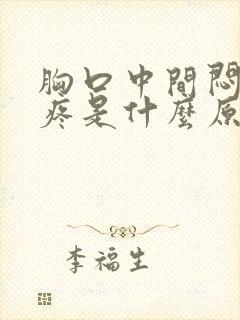 胸口中間悶
疼是什麼原
李福生